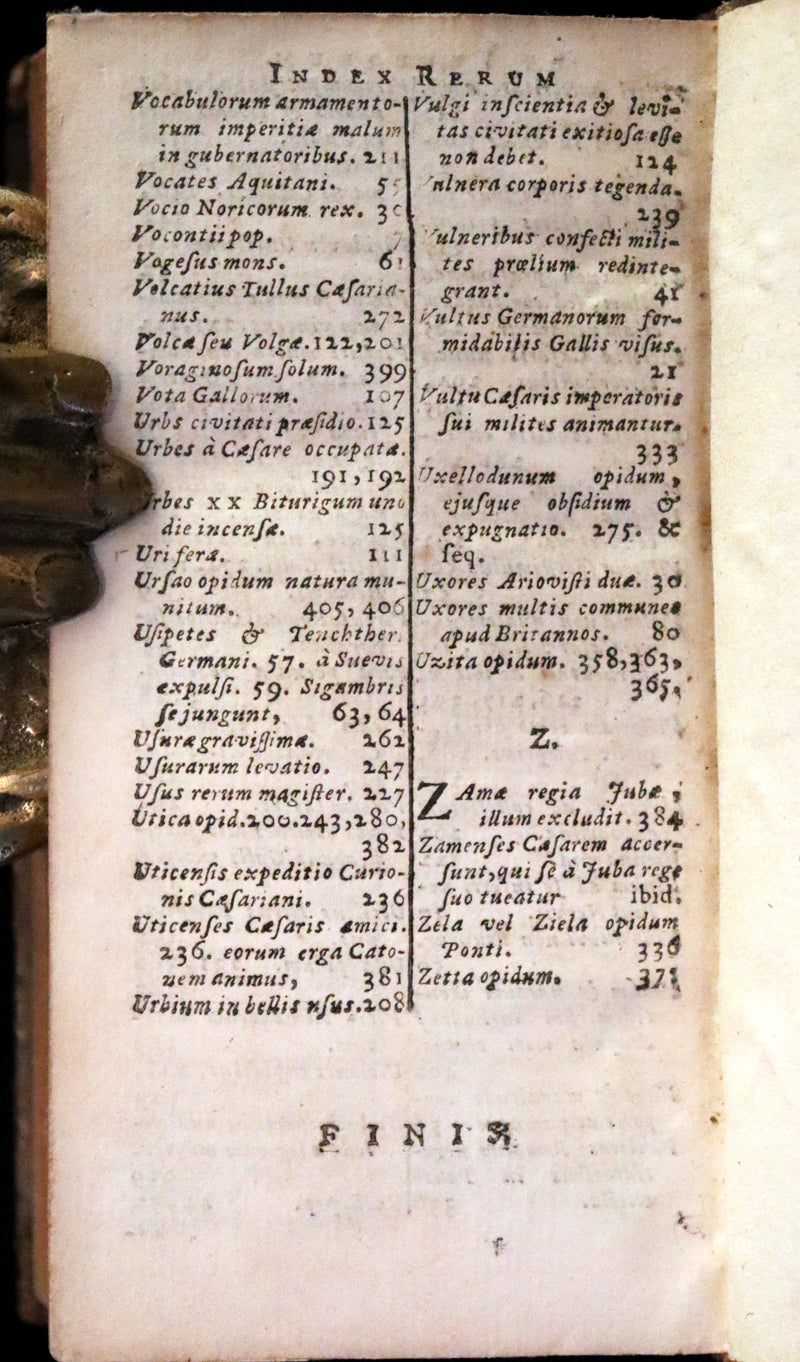 INDEX RERUM
Vocabulorum armamento-
rum imperitiæ malum
in gubernatoribus. 211
Vocates Aquitani. 5
Vocio Noricorum rex. 30
Vocontii pop. 7
Vogeſus mons. 61
Volcatius Tullus Cæſaria-
nus. 272
Volcæ ſeu Volgæ. 122, 201
Voraginoſum ſolum. 399
Vota Gallorum. 107
Urbs civitati præſidio. 125
Urbes à Cæſare occupatæ.
191, 192
Urbes XX Biturigum uno
die incenſæ. 125
Uri feræ. 111
Urſao opidum natura mu-
nitum. 405, 406
Uſipetes & Tenchther.
Germani. 57. à Suevis
expulſi. 59. Sigambris
ſe jungunt, 63, 64
Uſuræ graviſſimæ. 262
Uſurarum levatio. 247
Uſus rerum magiſter. 227
Utica opid. 200. 243, 280,
382
Uticenſis expeditio Curio-
nis Cæſariani. 236
Uticenſes Cæſaris amici.
236. eorum erga Cato-
nem animus, 381
Urbium in bellis uſus. 208
Vulgi inſcientia & levi-
tas civitati exitioſa eſſe
non debet. 124
Vulnera corporis tegenda.
239
Vulneribus confecti mili-
tes prœlium redinte-
grant. 41
Vultus Germanorum for-
midabilis Gallis viſus.
21
Vultu Cæſaris imperatoris
ſui milites animantur.
333
Uxellodunum opidum,
ejuſque obſidium &
expugnatio. 275. &
ſeq.
Uxores Arioviſti duæ. 30
Uxores multis communes
apud Britannos. 80
Uzita opidum. 358, 363,
365,
Z.
ZAmæ regia Jubæ,
illum excludit. 384
Zamenſes Cæſarem accer-
ſunt, qui ſe à Juba rege
ſuo tueatur ibid.
Zela vel Ziela opidum
Ponti. 336
Zetta opidum. 371
FINIS